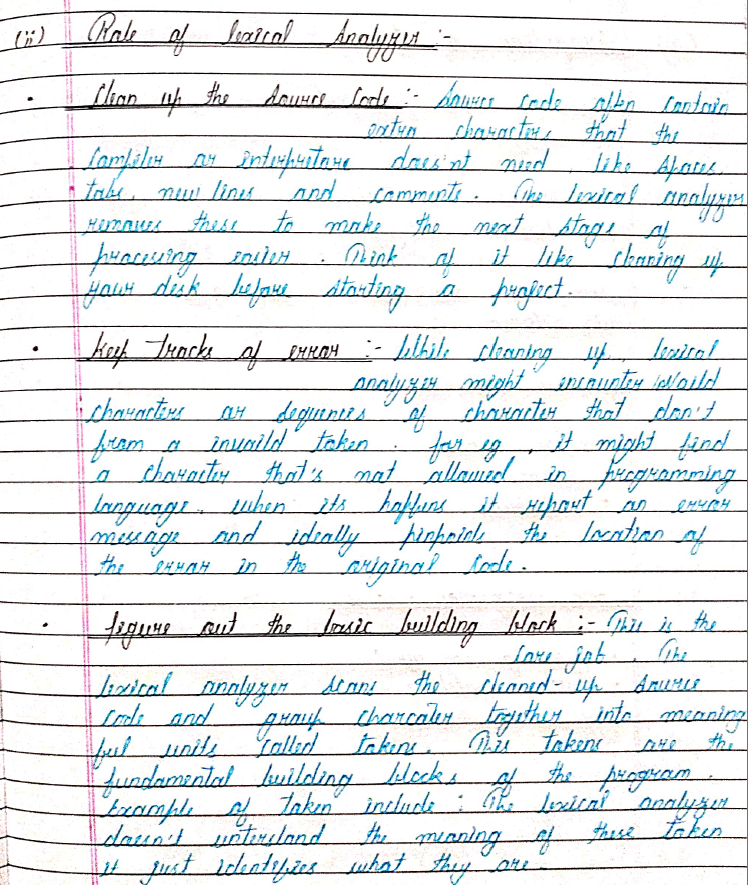 (ii) Role of lexical Analyzer :-
• Clean up the Source Code :- Source code often contain
extra characters that the
Compiler or interpretare does'nt need, like spaces,
tabs, new lines and comments. The lexical analyzer
removes these to make the next stage of
processing easier. Think of it like cleaning up
your desk before starting a project.
• Keep Tracks of error :- While cleaning up, lexical
analyzer might encounter Invaild
characters or sequences of character that don't
from a invaild token. for eg, it might find
a character that's not allowed in programming
language. when its happens it report an error
message and ideally pinpoids the location of
the error in the original code.
• figure out the basic building block :- This is the
core job. The
lexical analyzer scans the cleaned-up source
code and group charcater together into meaning
ful units called tokens. This tokens are the
fundamental building blocks of the program.
Example of token include : The lexical analyzer
doesn't unterstand the meaning of these token
it just identifies what they are.